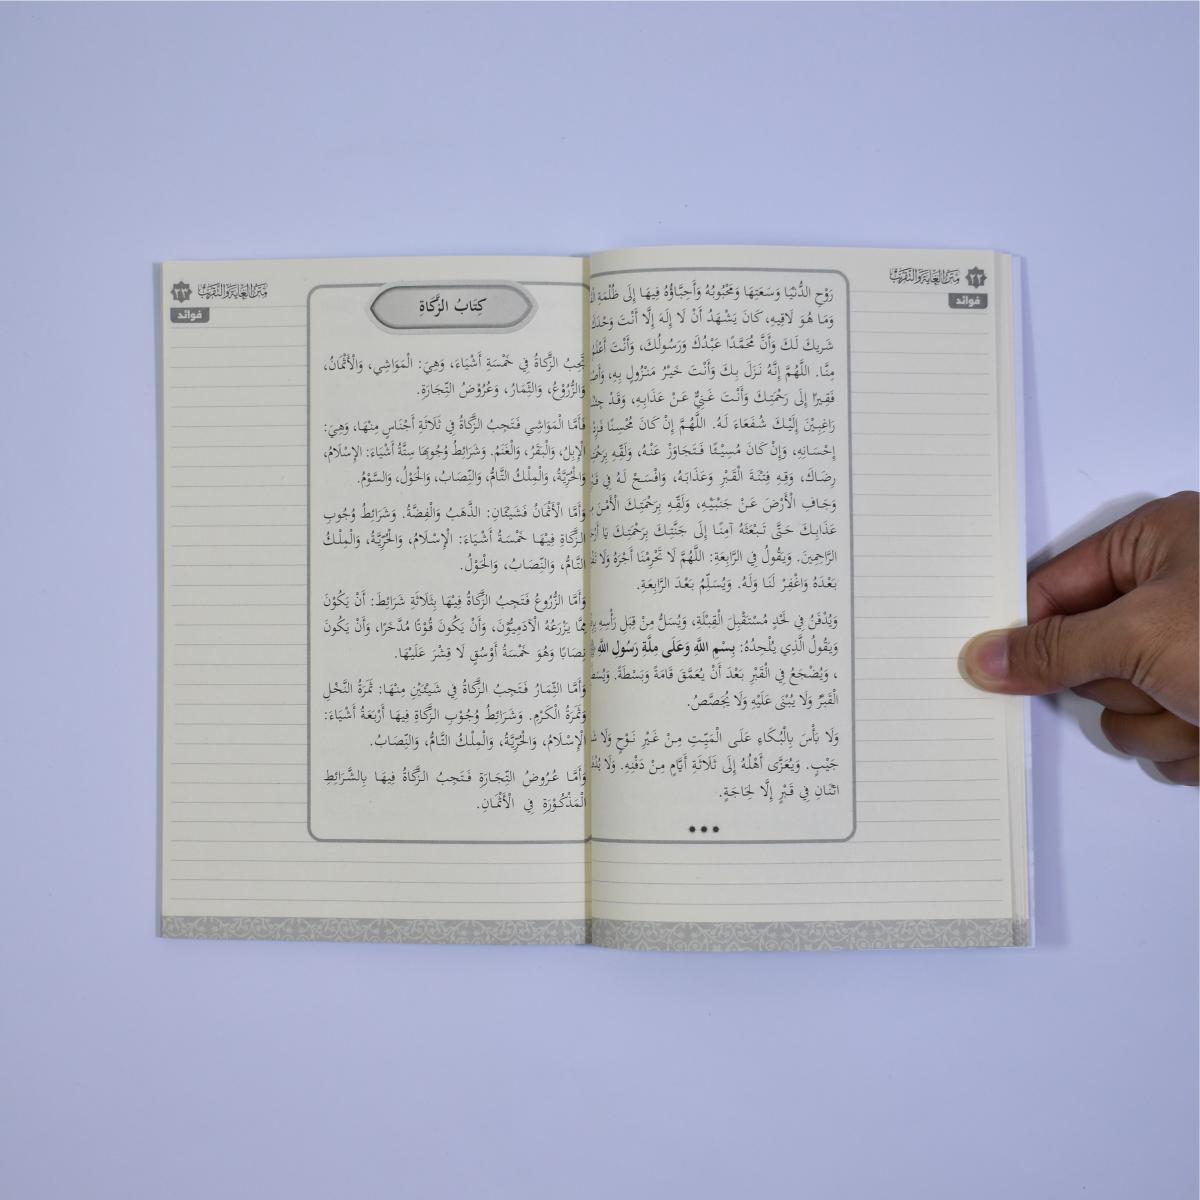 ٢٢ متن الغاية والتقريب
فوائد
رَوْحِ الدُّنْيَا وَسَعَتِهَا وَمَحْبُوبُهُ وَأَحِبَّاؤُهُ فِيهَا إِلَى ظُلْمَةِ
وَمَا هُوَ لَاقِيهِ، كَانَ يَشْهَدُ أَنْ لَا إِلَهَ إِلَّا أَنْتَ وَحْدَكَ
شَرِيكَ لَكَ وَأَنَّ مُحَمَّدًا عَبْدُكَ وَرَسُولُكَ، وَأَنْتَ أَعْلَمُ
مِنَّا. اللَّهُمَّ إِنَّهُ نَزَلَ بِكَ وَأَنْتَ خَيْرُ مَنْزُولٍ بِهِ،
فَقِيرًا إِلَى رَحْمَتِكَ وَأَنْتَ غَنِيٌّ عَنْ عَذَابِهِ، وَقَدْ
رَاغِبِيْنَ إِلَيْكَ شُفَعَاءَ لَهُ. اللَّهُمَّ إِنْ كَانَ مُحْسِنًا
إِحْسَانِهِ، وَإِنْ كَانَ مُسِيْئًا فَتَجَاوَزْ عَنْهُ، وَلَقِّهِ
رِضَاكَ، وَقِهِ فِتْنَةَ الْقَبْرِ وَعَذَابَهُ، وَافْسَحْ لَهُ فِي
وَجَافِ الْأَرْضَ عَنْ جَنْبَيْهِ، وَلَقِّهِ بِرَحْمَتِكَ الْأَمْنَ
عَذَابِكَ حَتَّى تَبْعَثَهُ آمِنًا إِلَى جَنَّتِكَ بِرَحْمَتِكَ يَا
الرَّاحِمِينَ. وَيَقُولُ فِي الرَّابِعَةِ: اللَّهُمَّ لَا تَحْرِمْنَا أَجْرَهُ وَلَا
بَعْدَهُ وَاغْفِرْ لَنَا وَلَهُ. وَيُسَلِّمُ بَعْدَ الرَّابِعَةِ.
وَيُدْفَنُ فِي لَحْدٍ مُسْتَقْبِلَ الْقِبْلَةِ، وَيُسَلُّ مِنْ قِبَلِ رَأْسِهِ
وَيَقُولُ الَّذِي يُلْحِدُهُ: بِسْمِ اللَّهِ وَعَلَى مِلَّةِ رَسُولِ اللَّهِ
، وَيُضْجَعُ فِي الْقَبْرِ بَعْدَ أَنْ يُعَمَّقَ قَامَةً وَبَسْطَةً.
الْقَبْرُ وَلَا يُبْنَى عَلَيْهِ وَلَا يُجَصَّصُ.
وَلَا بَأْسَ بِالْبُكَاءِ عَلَى الْمَيِّتِ مِنْ غَيْرِ نَوْحٍ وَلَا
جَيْبٍ. وَيُعَزَّى أَهْلُهُ إِلَى ثَلَاثَةِ أَيَّامٍ مِنْ دَفْنِهِ. وَلَا
اثْنَانِ فِي قَبْرٍ إِلَّا لِحَاجَةٍ.
متن الغاية والتقريب ٢٣
فوائد
كِتَابُ الزَّكَاةِ
تَجِبُ الزَّكَاةُ فِي خَمْسَةِ أَشْيَاءَ، وَهِيَ: الْمَوَاشِي، وَالْأَثْمَانُ،
وَالزُّرُوْعُ، وَالثِّمَارُ، وَعُرُوْضُ التِّجَارَةِ.
فَأَمَّا الْمَوَاشِي فَتَجِبُ الزَّكَاةُ فِي ثَلَاثَةِ أَجْنَاسٍ مِنْهَا، وَهِيَ:
الْإِبِلُ، وَالْبَقَرُ، وَالْغَنَمُ. وَشَرَائِطُ وُجُوبِهَا سِتَّةُ أَشْيَاءَ: الْإِسْلَامُ،
وَالْحُرِّيَّةُ، وَالْمِلْكُ التَّامُّ، وَالنِّصَابُ، وَالْحَوْلُ، وَالسَّوْمُ.
وَأَمَّا الْأَثْمَانُ فَشَيْئَانِ: الذَّهَبُ وَالْفِضَّةُ. وَشَرَائِطُ وُجُوبِ
الزَّكَاةِ فِيْهَا خَمْسَةُ أَشْيَاءَ: الْإِسْلَامُ، وَالْحُرِّيَّةُ، وَالْمِلْكُ
التَّامُّ، وَالنِّصَابُ، وَالْحَوْلُ.
وَأَمَّا الزُّرُوعُ فَتَجِبُ الزَّكَاةُ فِيْهَا بِثَلَاثَةِ شَرَائِطَ: أَنْ يَكُوْنَ
مِمَّا يَزْرَعُهُ الْآدَمِيُّوْنَ، وَأَنْ يَكُونَ قُوْتًا مُدَّخَرًا، وَأَنْ يَكُونَ
نِصَابًا وَهُوَ خَمْسَةُ أَوْسُقٍ لَا قِشْرَ عَلَيْهَا.
وَأَمَّا الثِّمَارُ فَتَجِبُ الزَّكَاةُ فِي شَيْئَيْنِ مِنْهَا: ثَمَرَةُ النَّخْلِ
وَثَمَرَةُ الْكَرْمِ. وَشَرَائِطُ وُجُوْبِ الزَّكَاةِ فِيهَا أَرْبَعَةُ أَشْيَاءَ:
الْإِسْلَامُ، وَالْحُرِّيَّةُ، وَالْمِلْكُ التَّامُّ، وَالنِّصَابُ.
وَأَمَّا عُرُوضُ التِّجَارَةِ فَتَجِبُ الزَّكَاةُ فِيهَا بِالشَّرَائِطِ
الْمَذْكُوْرَةِ فِي الْأَثْمَانِ.